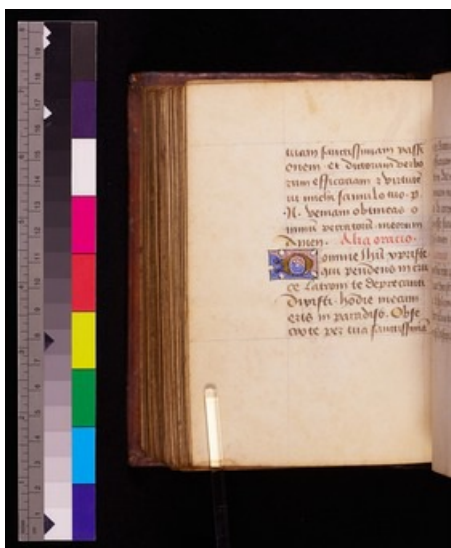 tuam sanctissimam passi
onem et dictorum verbo
rum efficaciam & virtute
ut michi famulo tuo . p.
.N. veniam obtineas o
mnium peccatorum meorum
Amen. Alia oracio.
Domine Ihu xpriste
qui pendens in cru
ce Latroni te deprecanti
Dixisti. hodie mecum
eris in paradiso. Obse
cro te per tua sanctissima